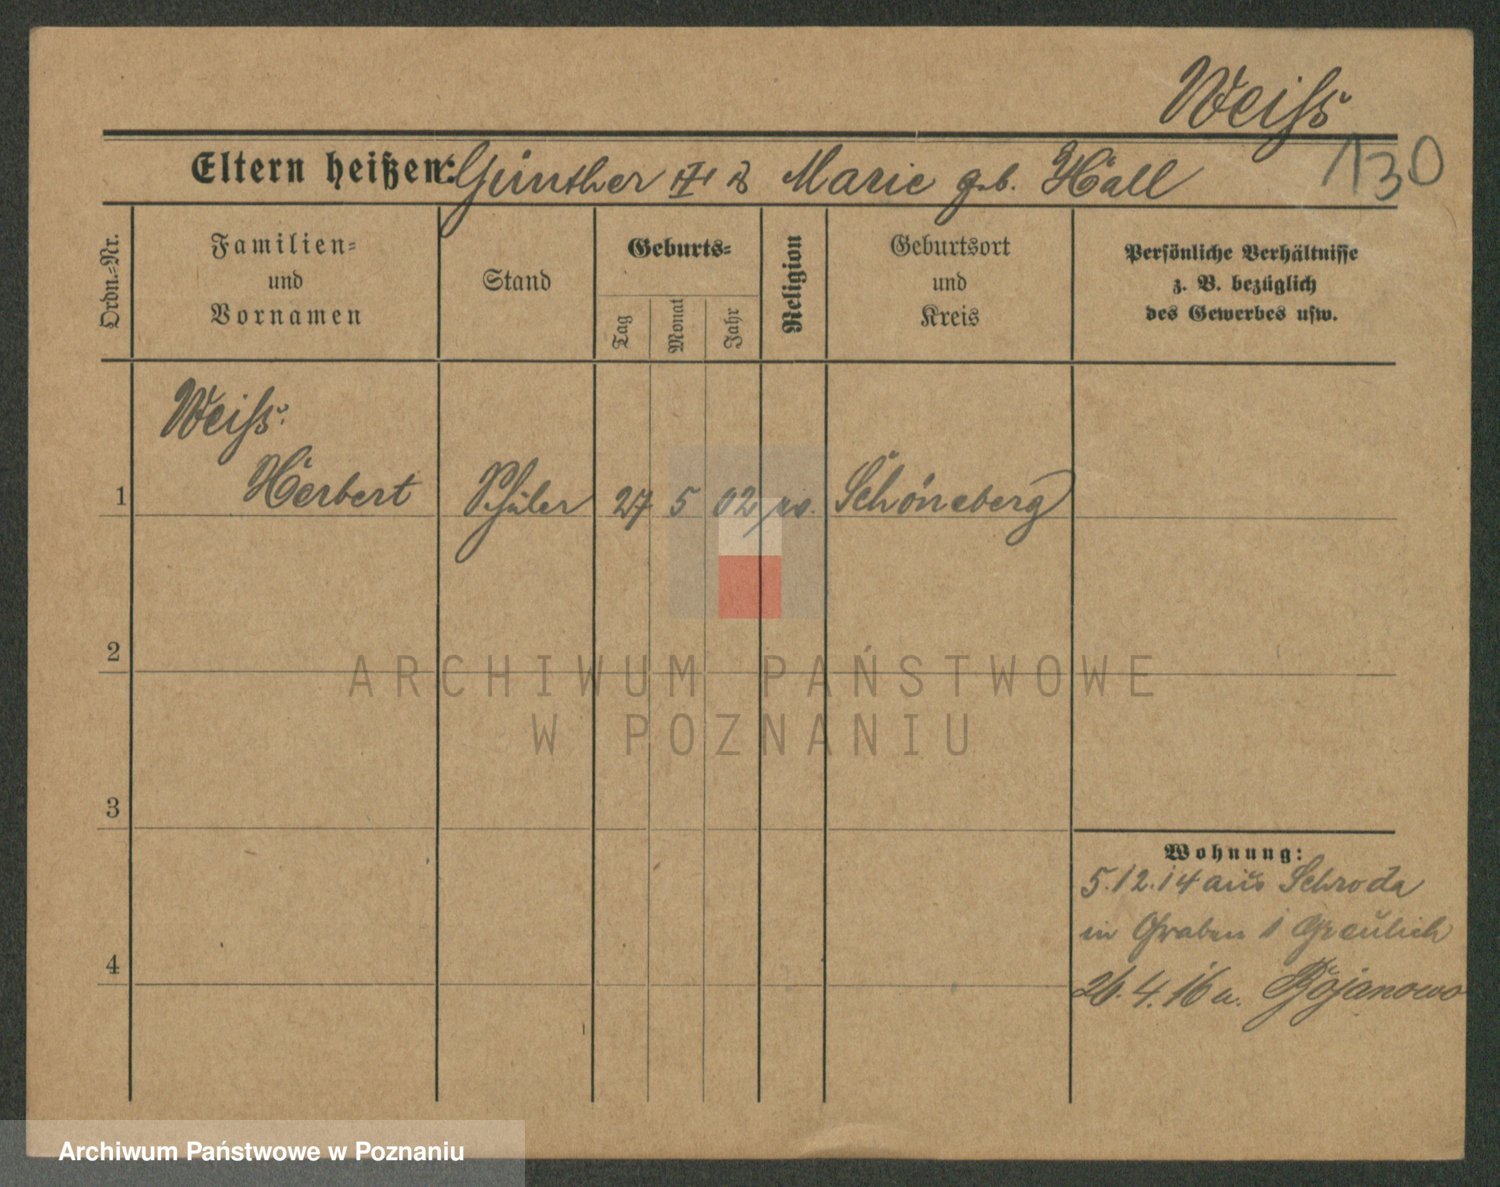 Weiß
130
Eltern heißen: Günther u. Marie geb. Hall
Ordn.-Nr.
Familien-
und
Vornamen
Stand
Geburts-
Tag
Monat
Jahr
Religion
Geburtsort
und
Kreis
Persönliche Verhältnisse
z. B. bezüglich
des Gewerbes usw.
Weiß.
1 Herbert Schüler 27 5 02 Schöneberg
2
3
4
Wohnung:
5.12.14 aus Schroda
in Graben 1 Greulich
26.4.16 n. Bojanowo
ARCHIWUM PAŃSTWOWE
W POZNANIU
Archiwum Państwowe w Poznaniu